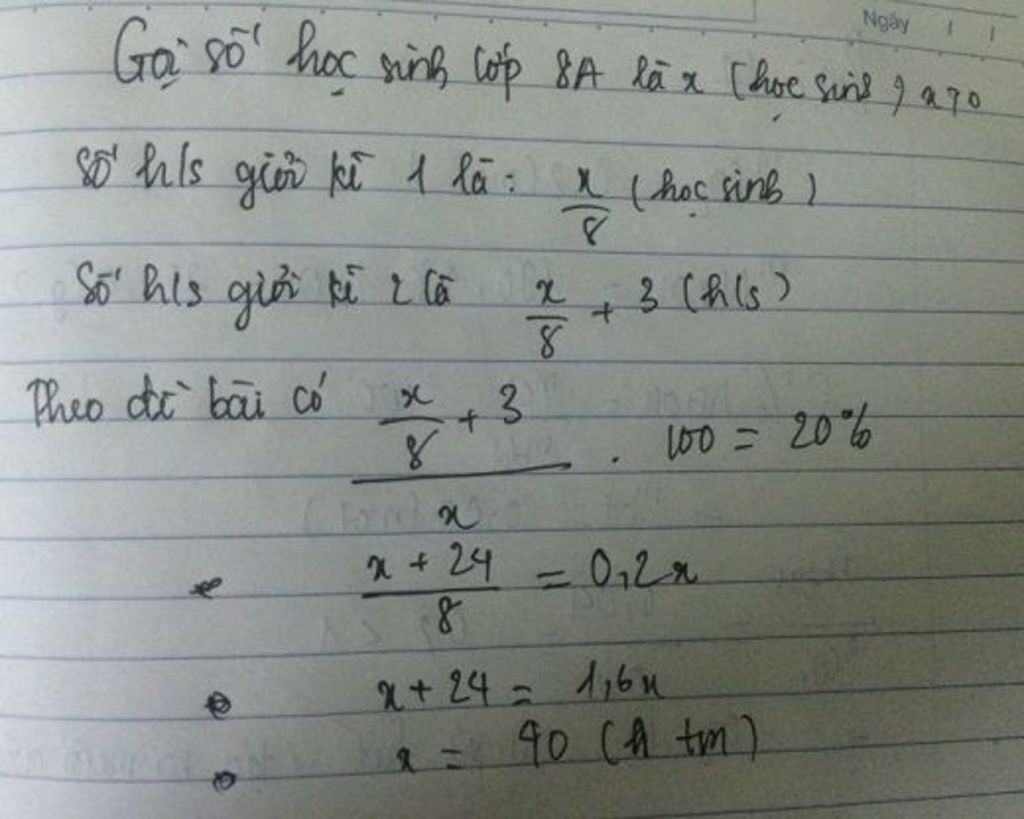 Ngày / /
Gọi số học sinh lớp 8A là x (học sinh) x>0
Số h/s giỏi kì 1 là: x/8 (học sinh)
Số h/s giỏi kì 2 là x/8 + 3 (h/s)
Theo đề bài có (x/8 + 3)/x . 100 = 20%
(x + 24)/8 = 0,2x
x + 24 = 1,6x
x = 40 (h tm)